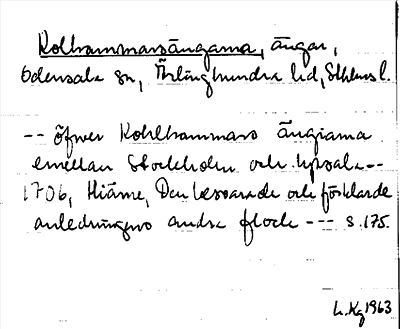 Kolhammarsängarna, ängar,
Odensala sn, Ärlinghundra hd, Sthlms l.
-- öfwer Kohlhammars ängiarna
emellan Stockholm och Upsala --
1706, Hiärne, Den besvarade och förklarade
anledningens andra flock --- s. 175.
L. Kg 1963